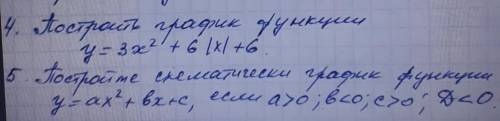 4. Построить график функции
y = 3x² + 6|x| + 6.
5. Постройте схематически график функции
y = ax² + bx + c, если a>0; b<0; c>0; D<0.